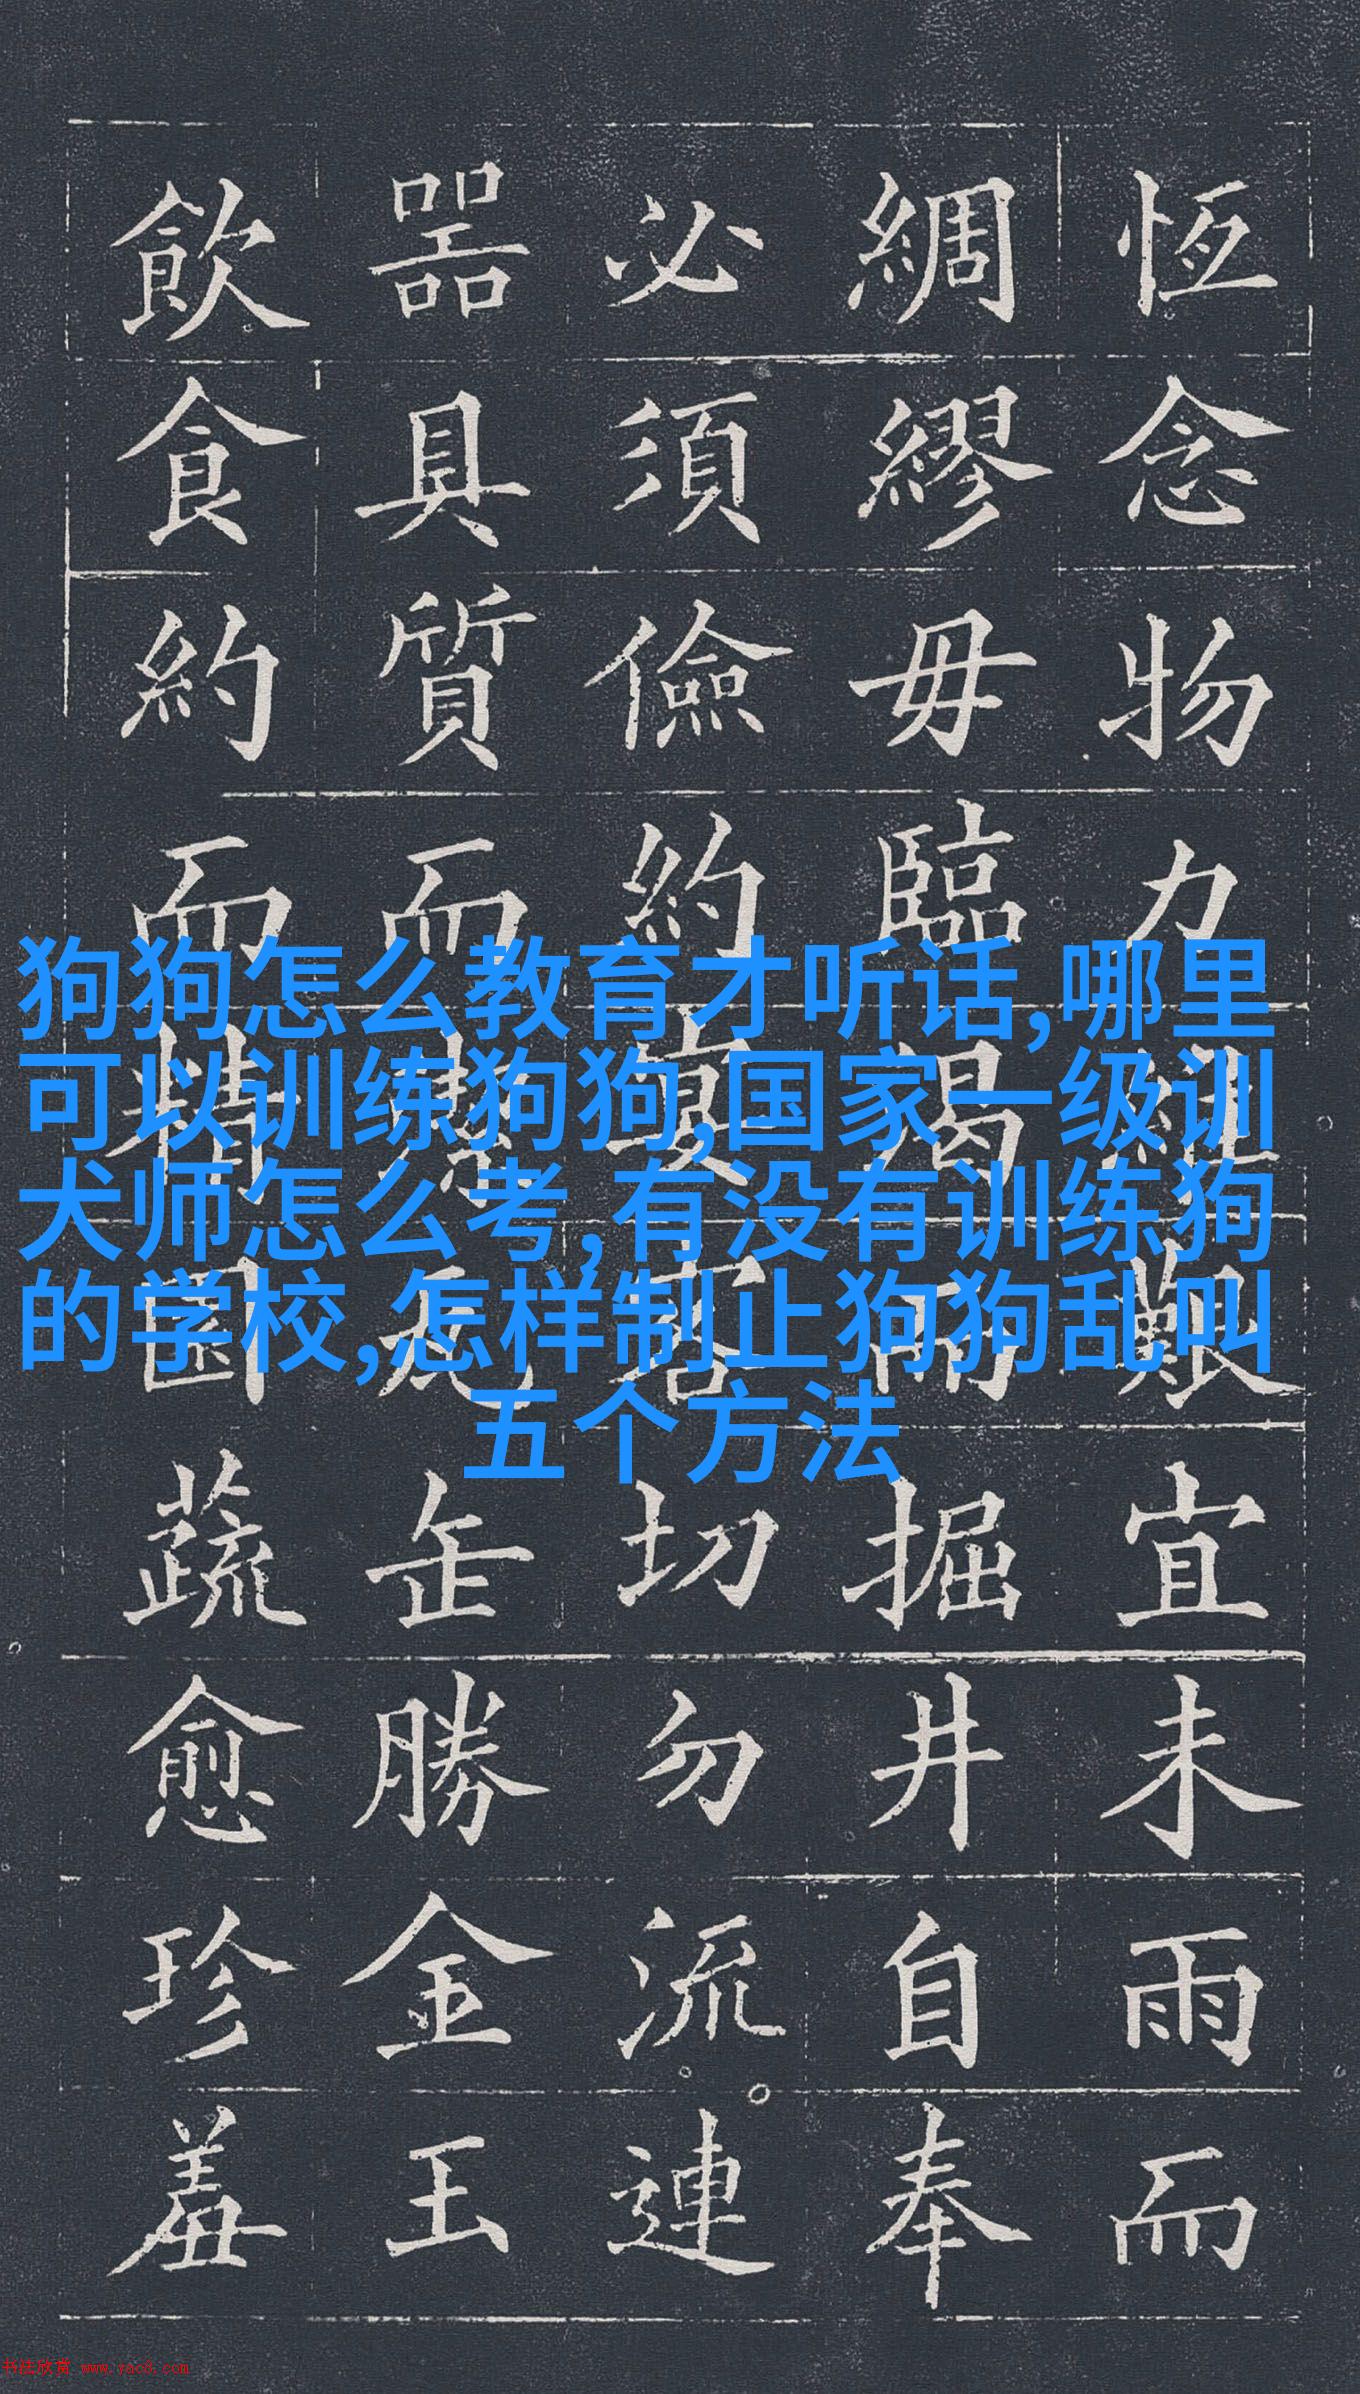 恆念物力維艱宜未雨而
綢繆毋臨渴而掘井自奉
必須儉約宴客切勿流連
噐具質而潔瓦缶勝金玉
飲食約而精園蔬愈珍羞
狗狗怎么教育才听话,哪里
可以训练狗狗,国家一级训
犬师怎么考,有没有训练狗
的学校,怎样制止狗狗乱叫
五个方法
书法欣赏 www.yac8.com